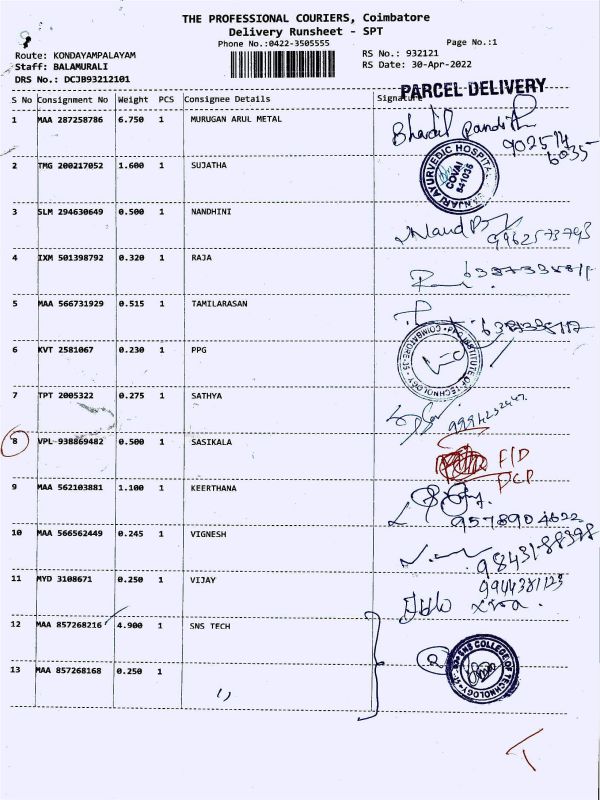 THE PROFESSIONAL COURIERS, Coimbatore
Delivery Runsheet - SPT
Phone No.:0422-3505555
Page No.:1
Route: KONDAYAMPALAYAM
RS No.: 932121
Staff: BALAMURALI
RS Date: 30-Apr-2022
DRS No.: DCJB93212101
PARCEL DELIVERY
S No Consignment No Weight PCS Consignee Details Signature
1 MAA 287258786 6.750 1 MURUGAN ARUL METAL
2 TMG 200217052 1.600 1 SUJATHA
AYURVEDIC HOSPITAL
COVAI
641035
3 SLM 294630649 0.500 1 NANDHINI
9962573793
4 IXM 501398792 0.320 1 RAJA
5 MAA 566731929 0.515 1 TAMILARASAN
6 KVT 2581067 0.230 1 PPG
PPG INSTITUTE OF TECHNOLOGY COIMBATORE-35
7 TPT 2005322 0.275 1 SATHYA
8 VPL 938869482 0.500 1 SASIKALA
F/D
DCP
9 MAA 562103881 1.100 1 KEERTHANA
9578904622
10 MAA 566562449 0.245 1 VIGNESH
9843188398
11 MYD 3108671 0.250 1 VIJAY
9944381123
12 MAA 857268216 4.900 1 SNS TECH
2
SNS COLLEGE OF TECHNOLOGY
13 MAA 857268168 0.250 1 "